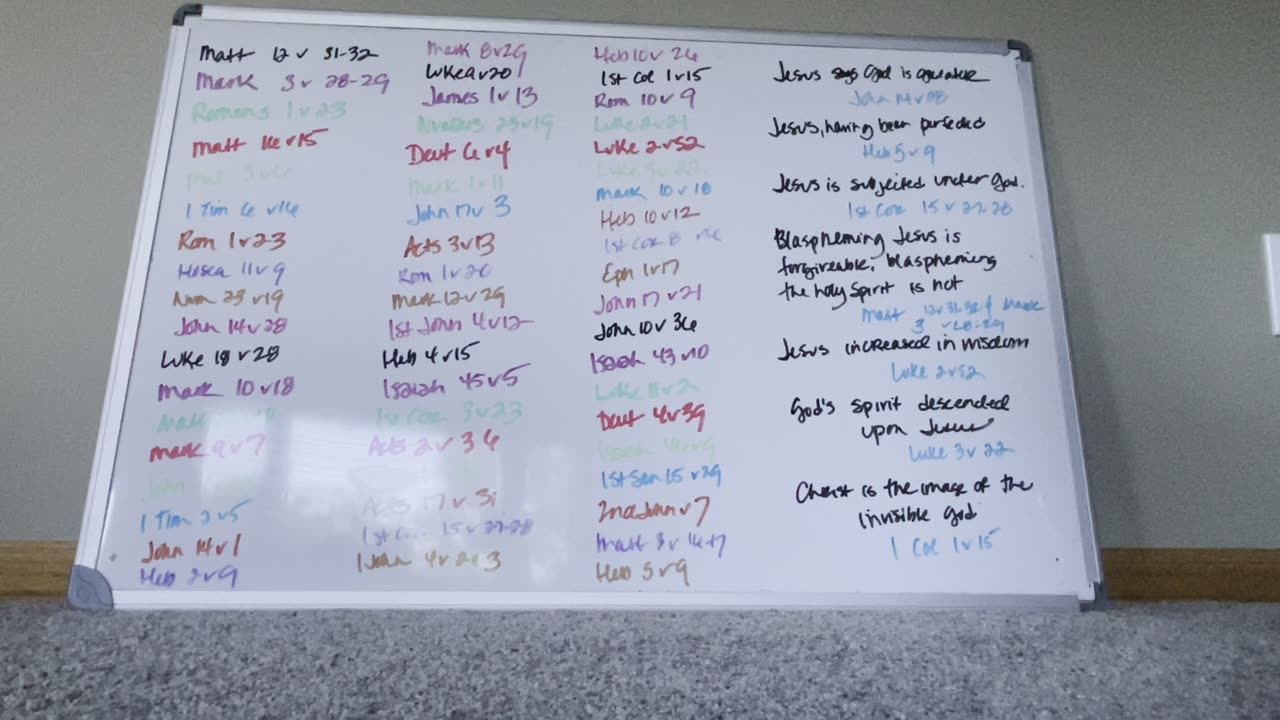 Matt 12 v 31-32
Mark 3 v 28-29
Romans 1 v 23
Matt 16 v 15
1 Tim 6 v16
Rom 1 v 23
Hosea 11 v 9
Num 23 v19
John 14 v 28
Luke 18 v 28
Mark 10 v 18
Mark 9 v 7
1 Tim 2 v 5
John 14 v 1
Heb 2 v 9
Mark 8 v 29
Luke 9 v 20
James 1 v 13
23 v 19
Deut 6 v 4
Mark 1 v 11
John 17 v 3
Acts 3 v 13
Rom 1 v 20
Mark 12 v 29
1st John 4 v 12
Heb 4 v 15
Isaiah 45 v 5
1st Cor 3 v 23
Acts 2 v 36
Acts 17 v 31
1st Cor 15 v 27-28
1 John 4 v 2+3
Heb 10 v 26
1st Col 1 v 15
Rom 10 v 9
Luke 2 v 21
Luke 2 v 52
Luke 3 v 22
Mark 10 v 18
Heb 10 v 12
1st Cor 8 v 6
Eph 1 v 17
John 17 v 21
John 10 v 36
Isaiah 43 v 10
Luke 11 v 2
Deut 4 v 39
Isaiah 46 v 9
1st Sam 15 v 29
2nd John v 7
Matt 3 v 16+17
Heb 5 v 9
Jesus says God is greater
John 14 v 28
Jesus, having been perfected
Heb 5 v 9
Jesus is subjected under God.
1st Cor 15 v 27-28
Blaspheming Jesus is
forgiveable, blaspheming
the Holy Spirit is not
Matt 12 v 31-32 & Mark
3 v 28-29
Jesus increased in wisdom
Luke 2 v 52
God's spirit descended
upon Jesus
Luke 3 v 22
Christ is the image of the
invisible God
1 Col 1 v 15